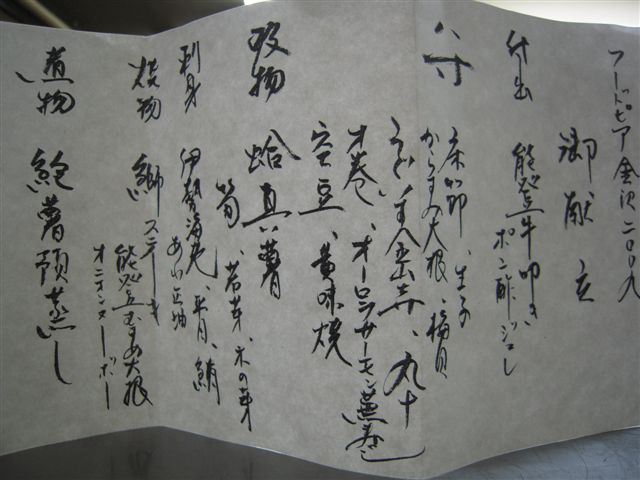 フードピア金沢二〇〇九
御献立
付出 能登牛叩き、
ポン酢ジュレ
八寸 床節、生子
からすみ大根、梅貝、
うど、金山寺、丸十
才巻、オーロラサーモン蕪巻き
空豆、黄味焼
吸物 蛤真薯
筍、若芽、木の芽
刺身 伊勢海老、平目、鮪
あわ正油
焼物 鰤ステーキ
能登むすめ大根
オニオンヌーボー
煮物 鮑薯預蒸し